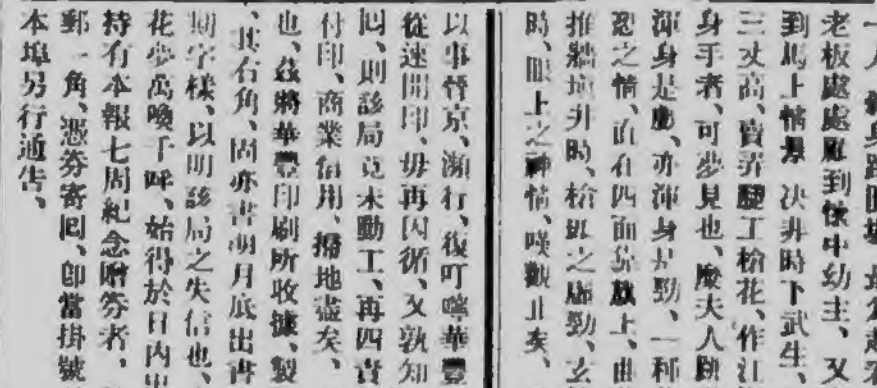 老板處處顧到懷中幼主、又
到馬上情景、決非時下武生、
三丈高、賣弄腿工槍花、作江
身手者、可夢見也、糜夫人
渾身是膽、亦渾身是勁、一種
恐之情、直在四面 上、曲
推牆填井時、槍 之 勁、玄
時、眼上之神情、嘆觀止矣、
以事晉京、瀕行、復叮嚀華豐
從速開印、毋再因循、又孰知
回、則該局竟未動工、再四責
付印、商業信用、掃地盡矣、
也、茲將華豐印刷所收據、製
、其右角、固亦書明月底出書
期字樣、以明該局之失信也、
花夢萬喚千呼、始得於日內出
持有本報七周紀念贈券者、
郵一角、憑券寄回、卽當掛號
本埠另行通告、